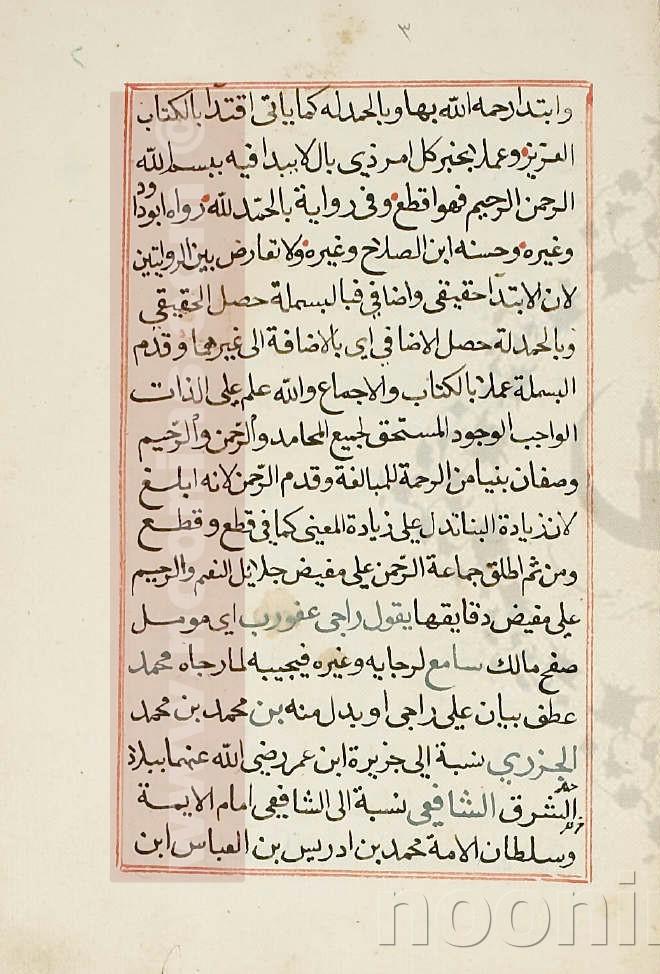 ٣
٢
وابتدا رحمه الله بها وبالحمدله كما ياتى اقتدا بالكتاب
العزيز وعملا بخبر كل امر ذى بال لا يبدا فيه ببسم الله
الرحمن الرحيم فهو اقطع وفى رواية بالحمد لله رواه ابو داود
وغيره وحسنه ابن الصلاح وغيره ولا تعارض بين الروايتين
لان الابتدا حقيقى واضافي فبالبسملة حصل الحقيقي
وبالحمدلة حصل الاضافي اى بالاضافة الى غيرهما وقدم
البسملة عملا بالكتاب والاجماع والله علم على الذات
الواجب الوجود المستحق لجميع المحامد والرحمن والرحيم
وصفان بنيا من الرحمة للمبالغة وقدم الرحمن لانه ابلغ
لان زيادة البنا تدل على زيادة المعنى كما فى قطع وقطع
ومن ثم اطلق جماعة الرحمن على مفيض جلايل النعم والرحيم
على مفيض دقايقها يقول راجى عفو رب اى مومل
صفح مالك سامع لرجايه وغيره فيجيبه لما رجاه محمد
عطف بيان على راجى او بدل منه بن محمد بن محمد
الجزري نسبة الى جزيرة ابن عمر رضى الله عنهما ببلاد
الشرق الشافعي نسبة الى الشافعي امام الايمة
وسلطان الامة محمد بن ادريس بن العباس ابن
noonin